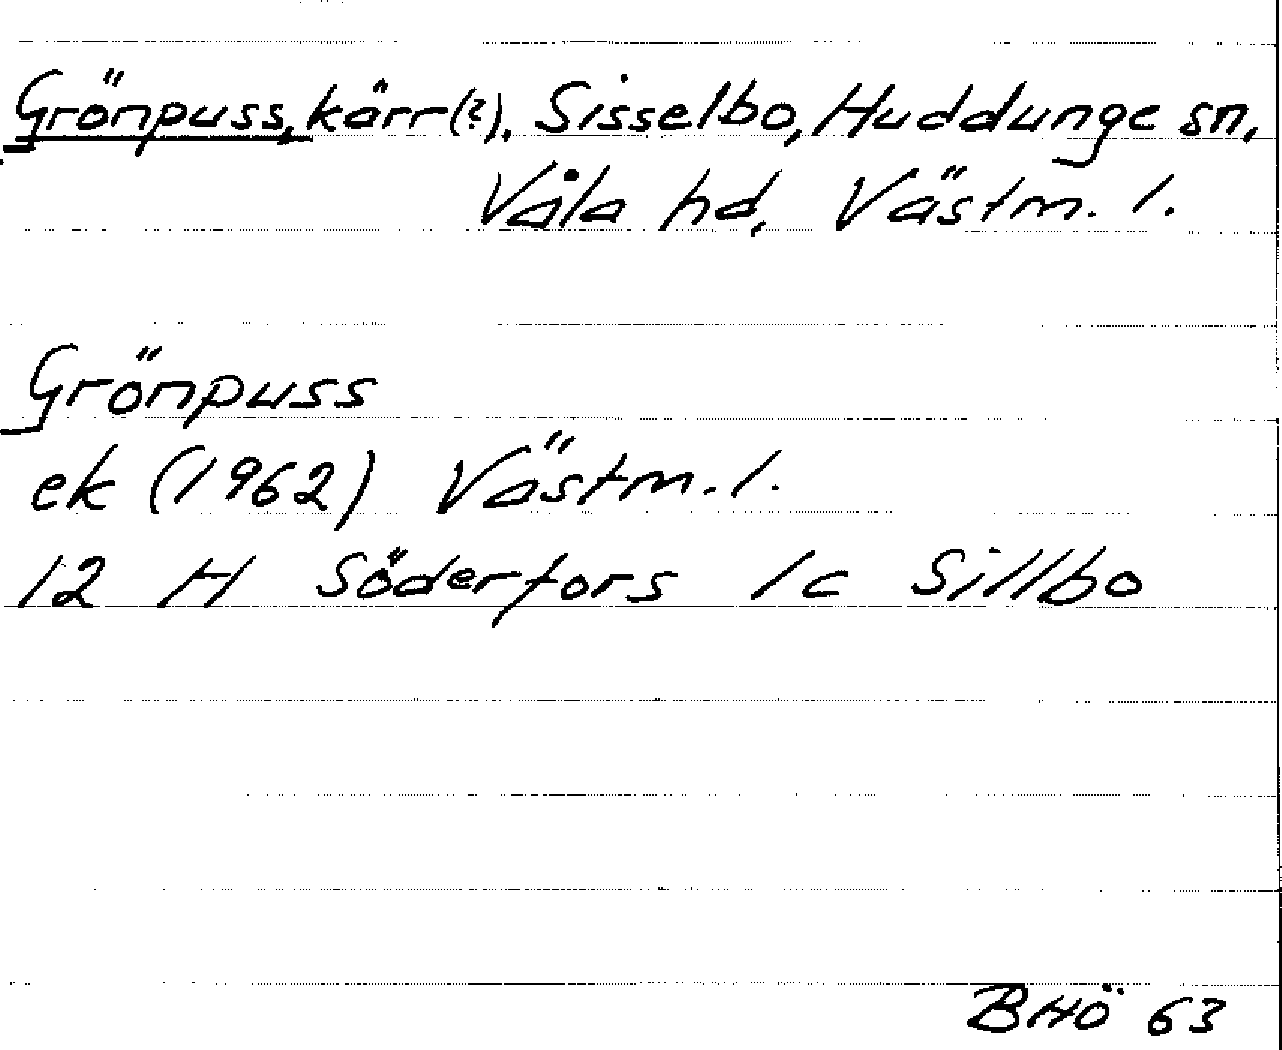 Grönpuss, kärr(?), Sisselbo, Huddunge sn,
Våla hd, Västm. l.
Grönpuss
ek (1962) Västm. l.
12 H Söderfors 1c Sillbo
BHÖ 63